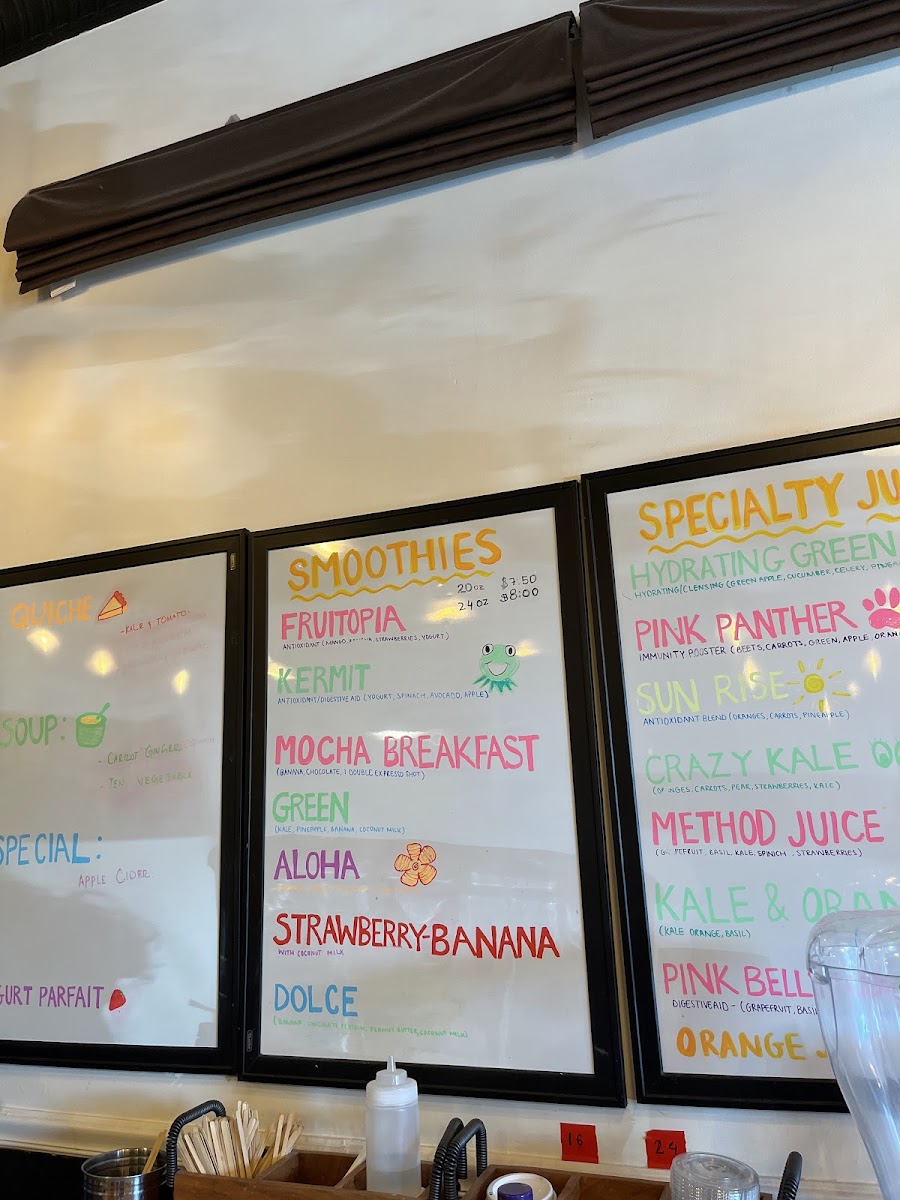 QUICHE
- KALE & TOMATO
SOUP:
- CARROT GINGER
- TEN VEGETABLE
SPECIAL:
APPLE CIDER
GURT PARFAIT
SMOOTHIES
20 oz $7.50
24 oz $8.00
FRUITOPIA
ANTIOXIDANT (MANGO, STRAWBERRIES, YOGURT)
KERMIT
ANTIOXIDANT/DIGESTIVE AID (YOGURT, SPINACH, AVOCADO, APPLE)
MOCHA BREAKFAST
(BANANA, CHOCOLATE, 1 DOUBLE EXPRESSO SHOT)
GREEN
(KALE, PINEAPPLE, BANANA, COCONUT MILK)
ALOHA
STRAWBERRY-BANANA
WITH COCONUT MILK
DOLCE
(BANANA, CHOCOLATE PEANUT BUTTER, COCONUT MILK)
SPECIALTY JU
HYDRATING GREEN
HYDRATING/CLENSING (GREEN APPLE, CUCUMBER, CELERY, PINEA
PINK PANTHER
IMMUNITY BOOSTER (BEETS, CARROTS, GREEN, APPLE, ORAN
SUN RISE
ANTIOXIDANT BLEND (ORANGES, CARROTS, PINEAPPLE)
CRAZY KALE
CARROTS, PEAR, STRAWBERRIES, KALE)
METHOD JUICE
BASIL, KALE, SPINICH, STRAWBERRIES)
KALE & ORAN
(KALE ORANGE, BASIL)
PINK BELL
DIGESTIVE AID - (GRAPEFRUIT, BASI
ORANGE
16
24